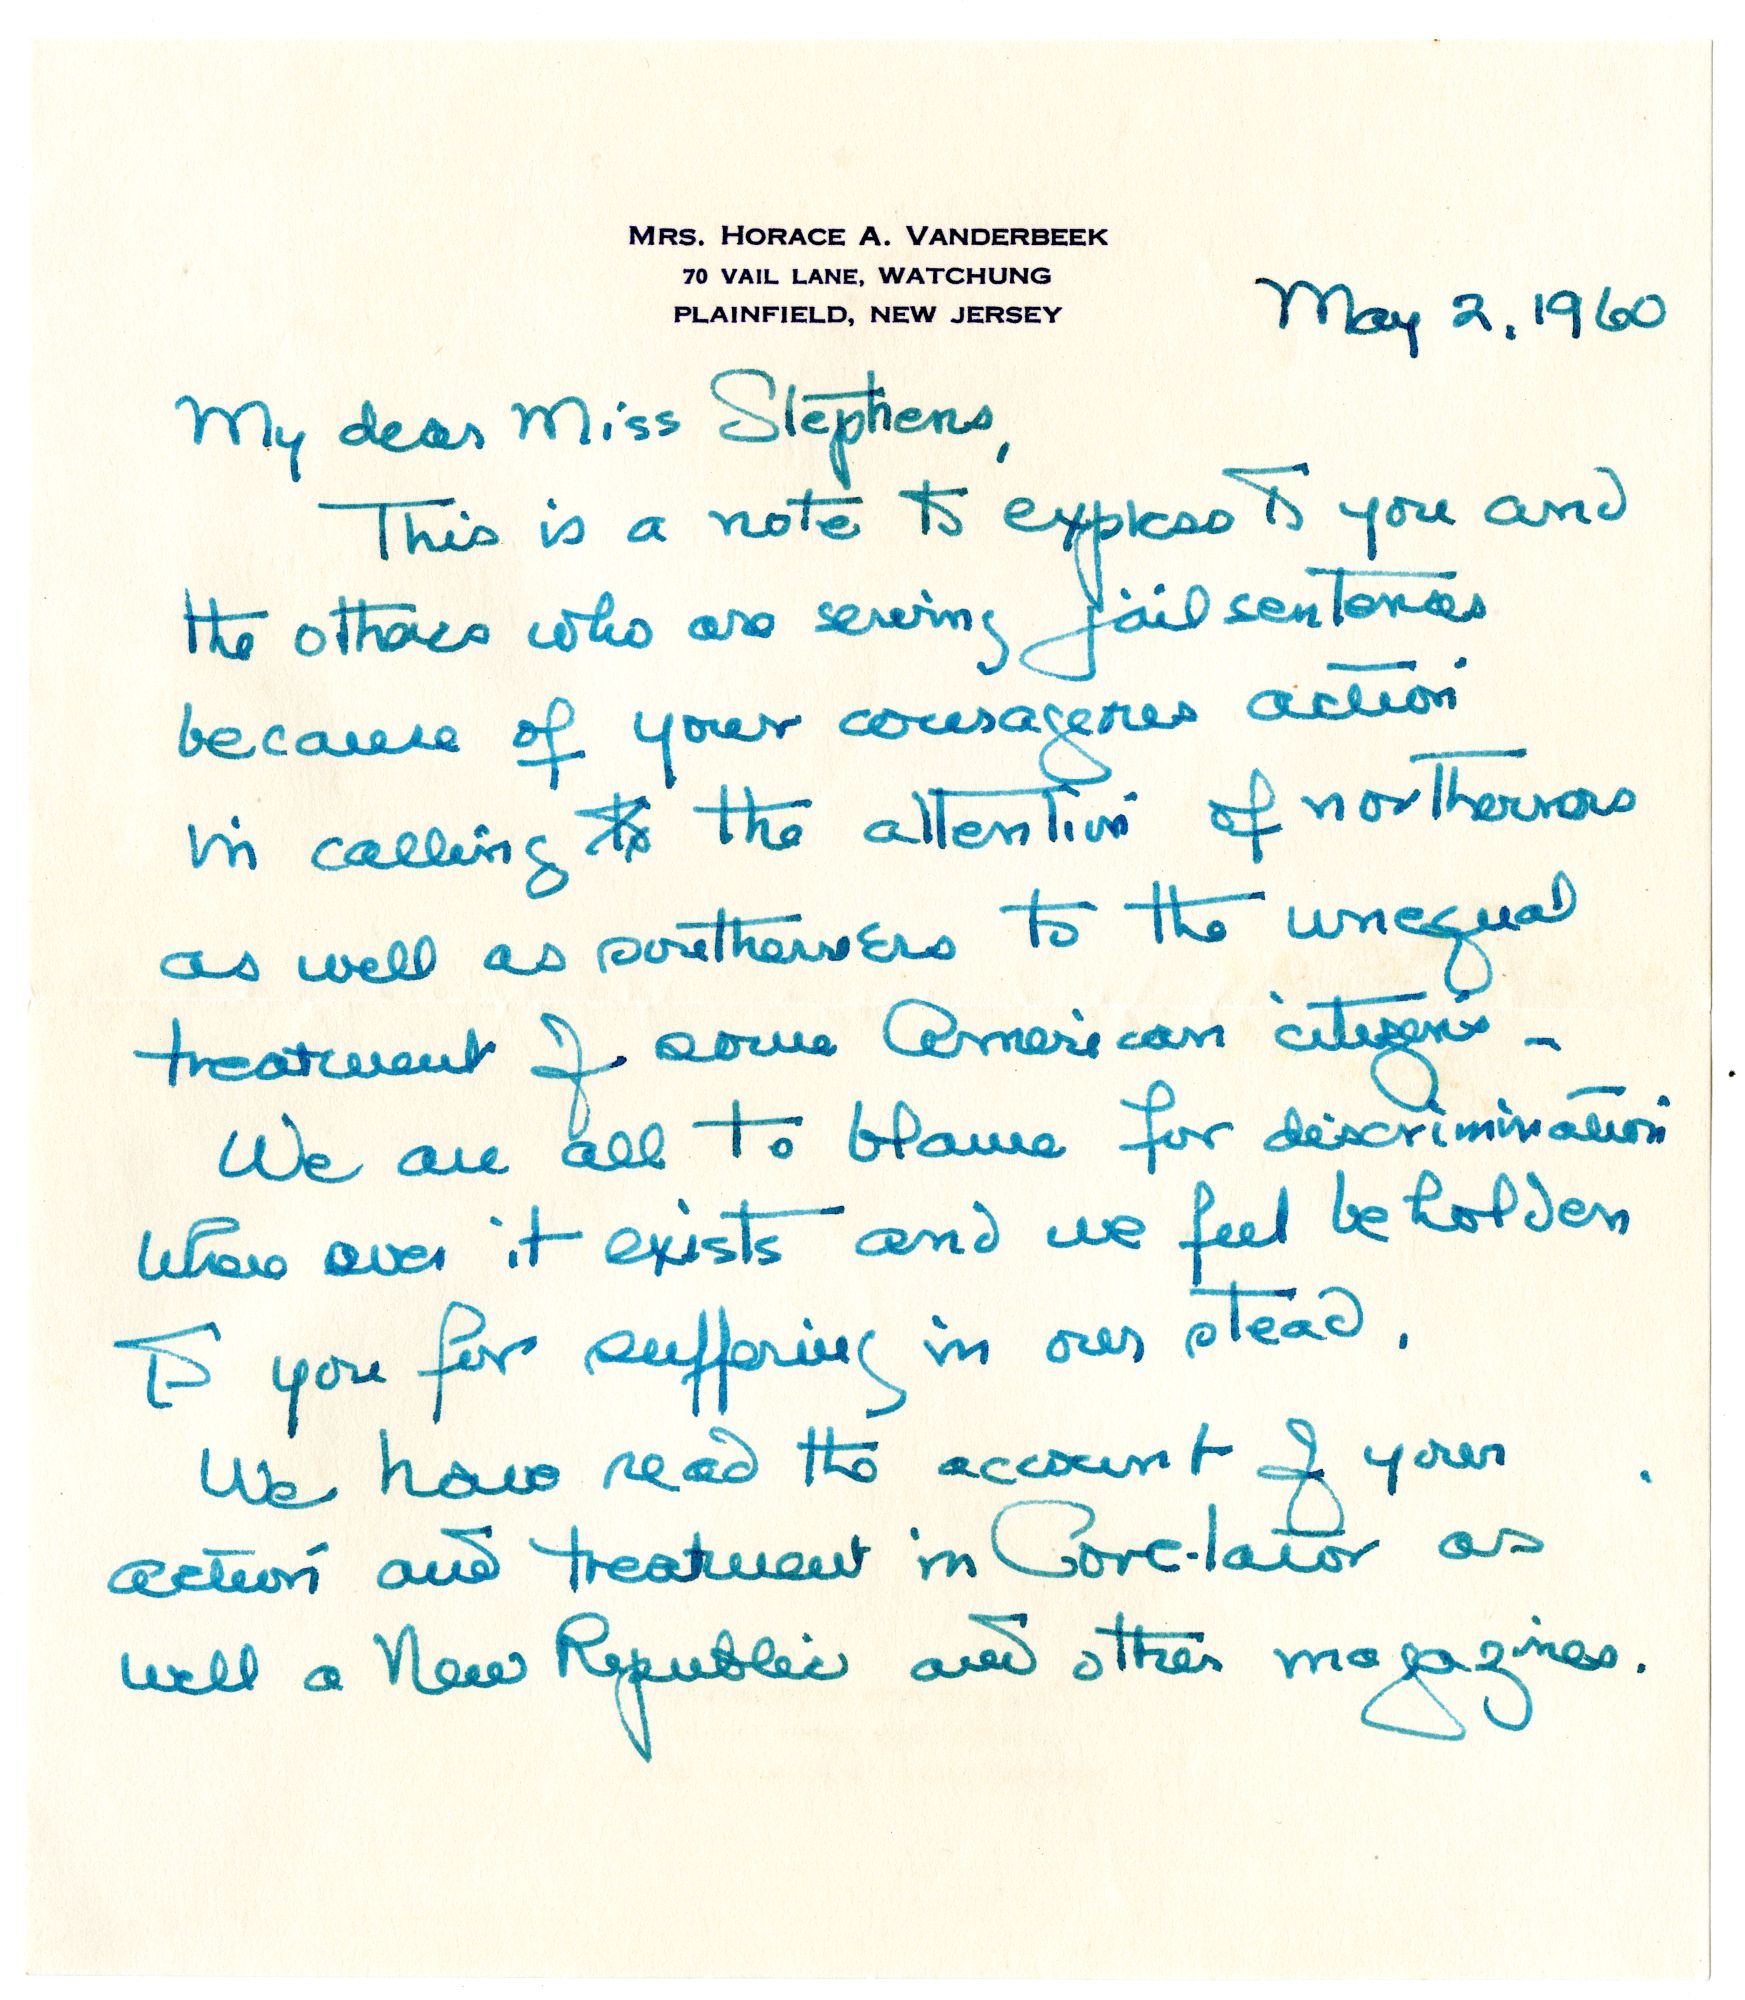 MRS. HORACE A. VANDERBEEK
70 VAIL LANE, WATCHUNG
PLAINFIELD, NEW JERSEY
May 2, 1960
My dear Miss Stephens,
This is a note to express to you and
the others who are serving jail sentences
because of your courageous action
in calling to the attention of northerners
as well as southerners to the unequal
treatment of some American citizens -
We are all to blame for discrimination
where ever it exists and we feel beholden
to you for suffering in our stead.
We have read the account of your
action and treatment in Core-lator as
well a New Republic and other magazines.